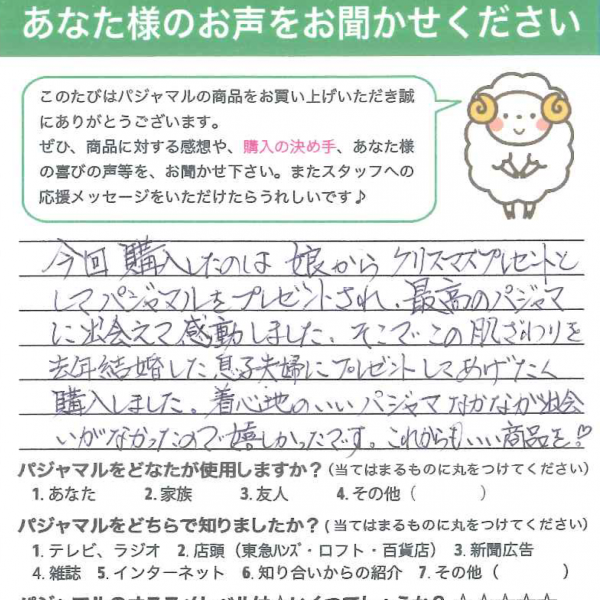 あなた様のお声をお聞かせください
このたびはパジャマルの商品をお買い上げいただき誠
にありがとうございます。
ぜひ、商品に対する感想や、購入の決め手、あなた様
の喜びの声等を、お聞かせ下さい。またスタッフへの
応援メッセージをいただけたらうれしいです♪
今回購入したのは 娘から クリスマスプレゼントと
してパジャマルをプレゼントされ、最高のパジャマ
に出会えて感動しました。そこでこの肌ざわりを
去年結婚した息子夫婦にプレゼントしてあげたく
購入しました。着心地のいいパジャマなかなか出会
いがなかったので嬉しかったです。これからもいい商品を♡
パジャマルをどなたが使用しますか？（当てはまるものに丸をつけてください）
1. あなた 2. 家族 3. 友人 4. その他（ ）
パジャマルをどちらで知りましたか？（当てはまるものに丸をつけてください）
1. テレビ、ラジオ 2. 店頭（東急ﾊﾝｽﾞ・ロフト・百貨店） 3. 新聞広告
4. 雑誌 5. インターネット 6. 知り合いからの紹介 7. その他（ ）